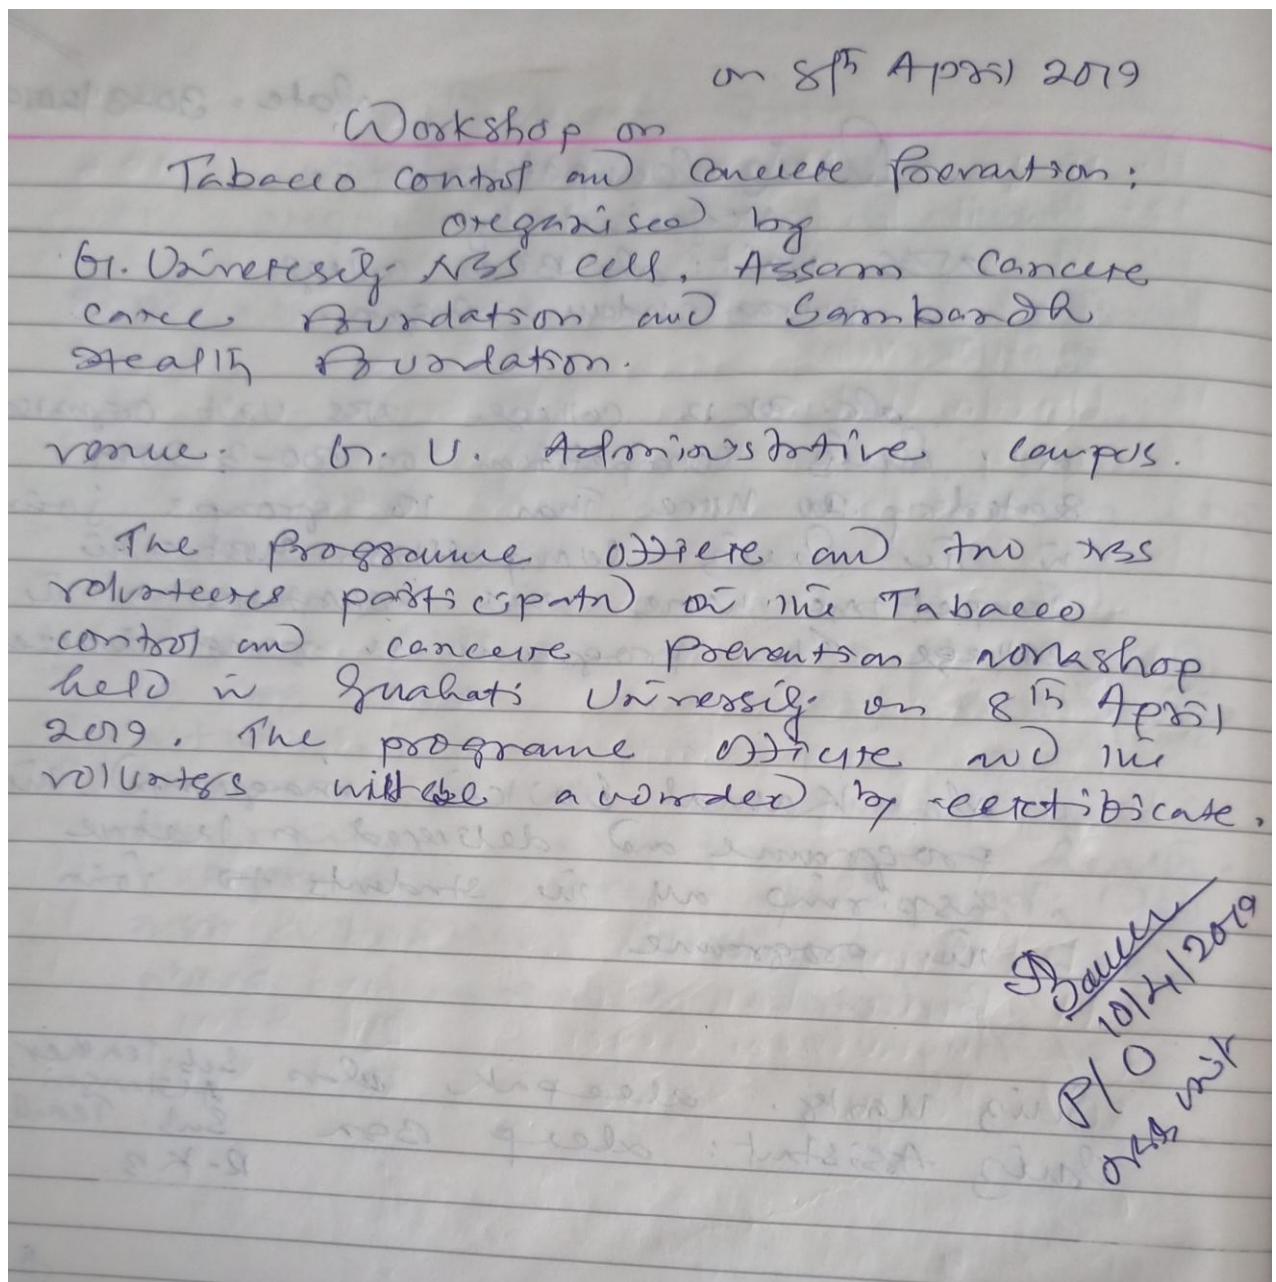 on 8th April 2019
Workshop on
Tabacco control and Cancere Prevantion:
oreganised by
G. Univeresity NSS Cell, Assam Cancere
Caree Foundation and Sambandh
Health Foundation.
venue: G. U. Administrative Campus.
The Programme officere and two NSS
volunteeres participated in the Tabacco
control and cancere prevantion workshop
held in Guahati University on 8th April
2019. The programe officere and the
volunters will be aworded by ceretificate.
10/4/2019
P/O
NSS unit